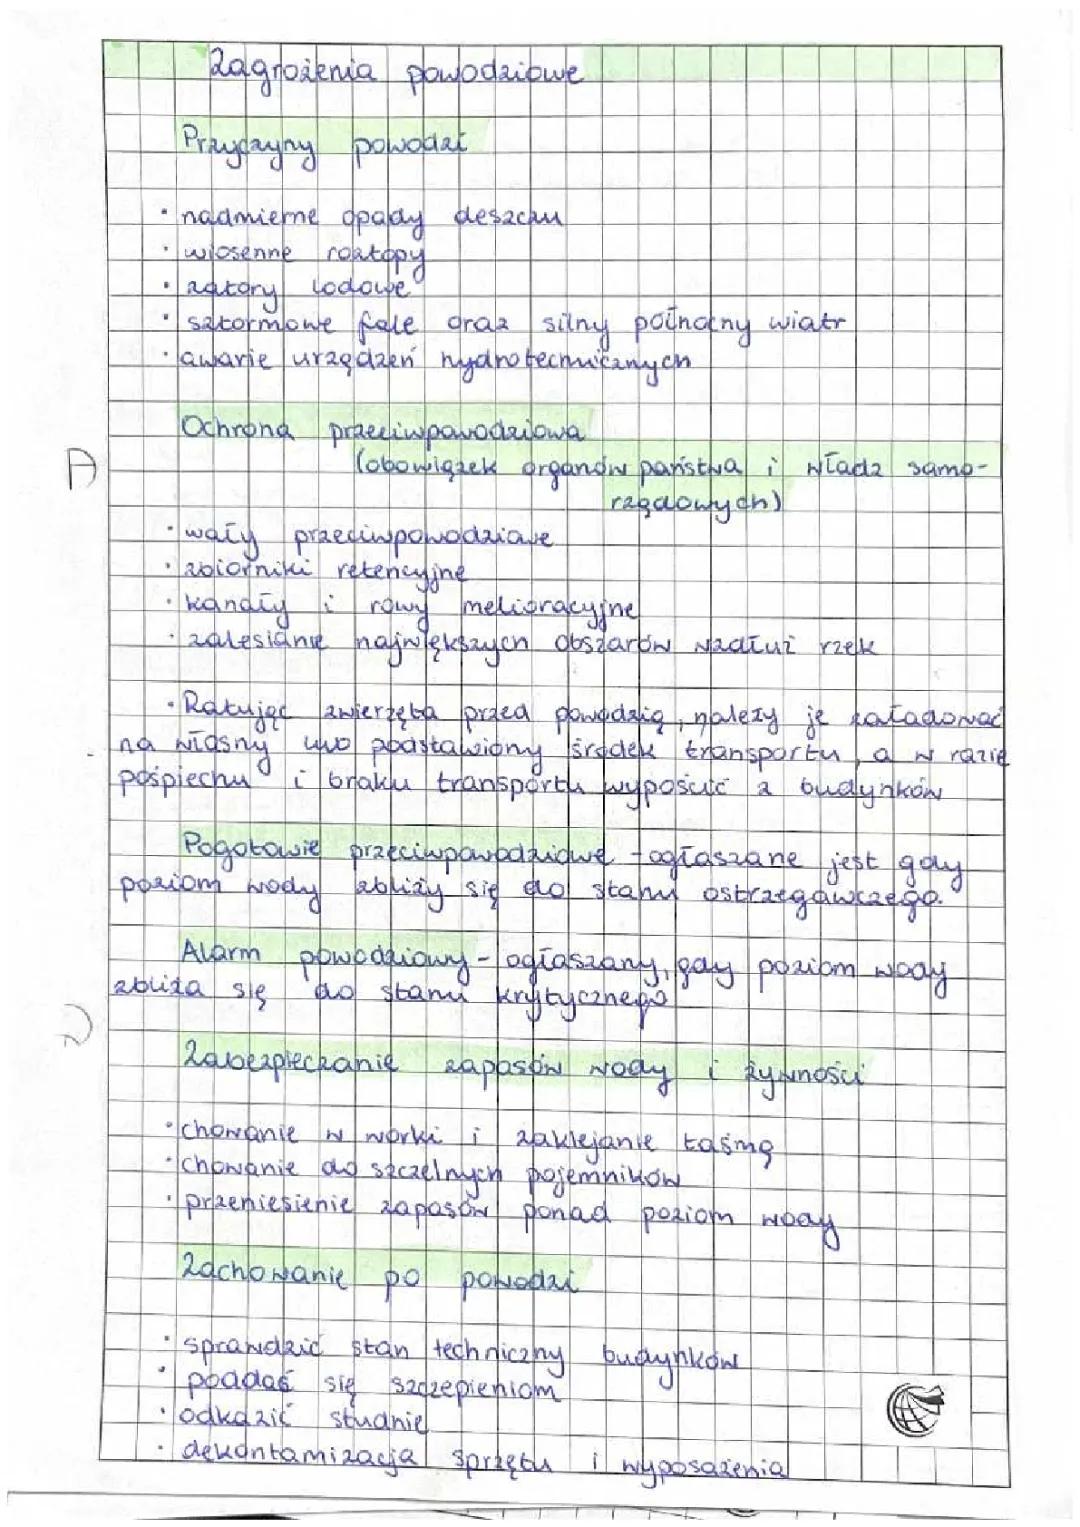 Zagrożenia powodziowe
Przyczyny powodzi
• nadmierne opady deszczu
• wiosenne roztopy
• zatory lodowe
• sztormowe fale oraz silny północny wiatr
• awarie urządzeń hydrotechnicznych
Ochrona przeciwpowodziowa
(obowiązek organów państwa i władz samo-
rządowych)
• wały przeciwpowodziowe
• zbiorniki retencyjne
• kanały i rowy melioracyjne
• zalesianie największych obszarów wzdłuż rzek
• Ratując zwierzęta przed powodzią, należy je załadować
na własny lub podstawiony środek transportu, a w razie
pośpiechu i braku transportu wypościć z budynków
Pogotowie przeciwpowodziowe - ogłaszane jest gdy
poziom wody zbliży się do stanu ostrzegawczego.
Alarm powodziowy - ogłaszany, gdy poziom wody
zbliża się do stanu krytycznego
Zabezpieczanie zapasów wody i żywności
• chowanie w worki i zaklejanie taśmą
• chowanie do szczelnych pojemników
• przeniesienie zapasów ponad poziom wody
Zachowanie po powodzi
• sprawdzić stan techniczny budynków
• poddać się szczepieniom
• odkazić studnie
• dekontamizacja sprzętu i wyposażenia